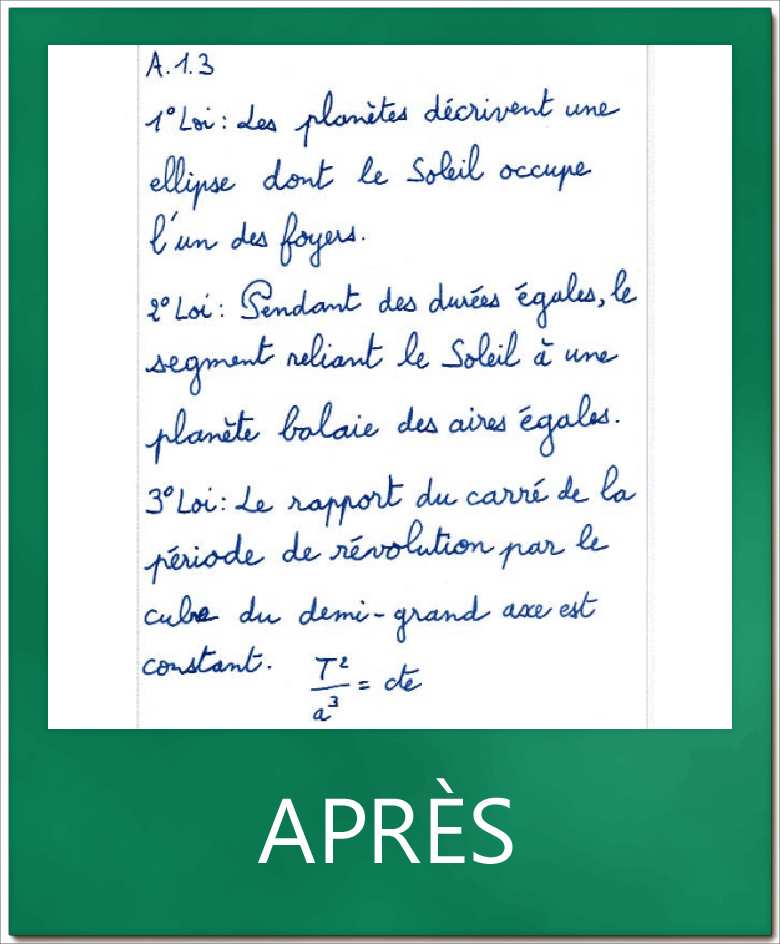 A.1.3
1° Loi : Les planètes décrivent une
ellipse dont le Soleil occupe
l'un des foyers.
2° Loi : Pendant des durées égales, le
segment reliant le Soleil à une
planète balaie des aires égales.
3° Loi : Le rapport du carré de la
période de révolution par le
cube du demi-grand axe est
constant. T²/a³ = cte
APRÈS